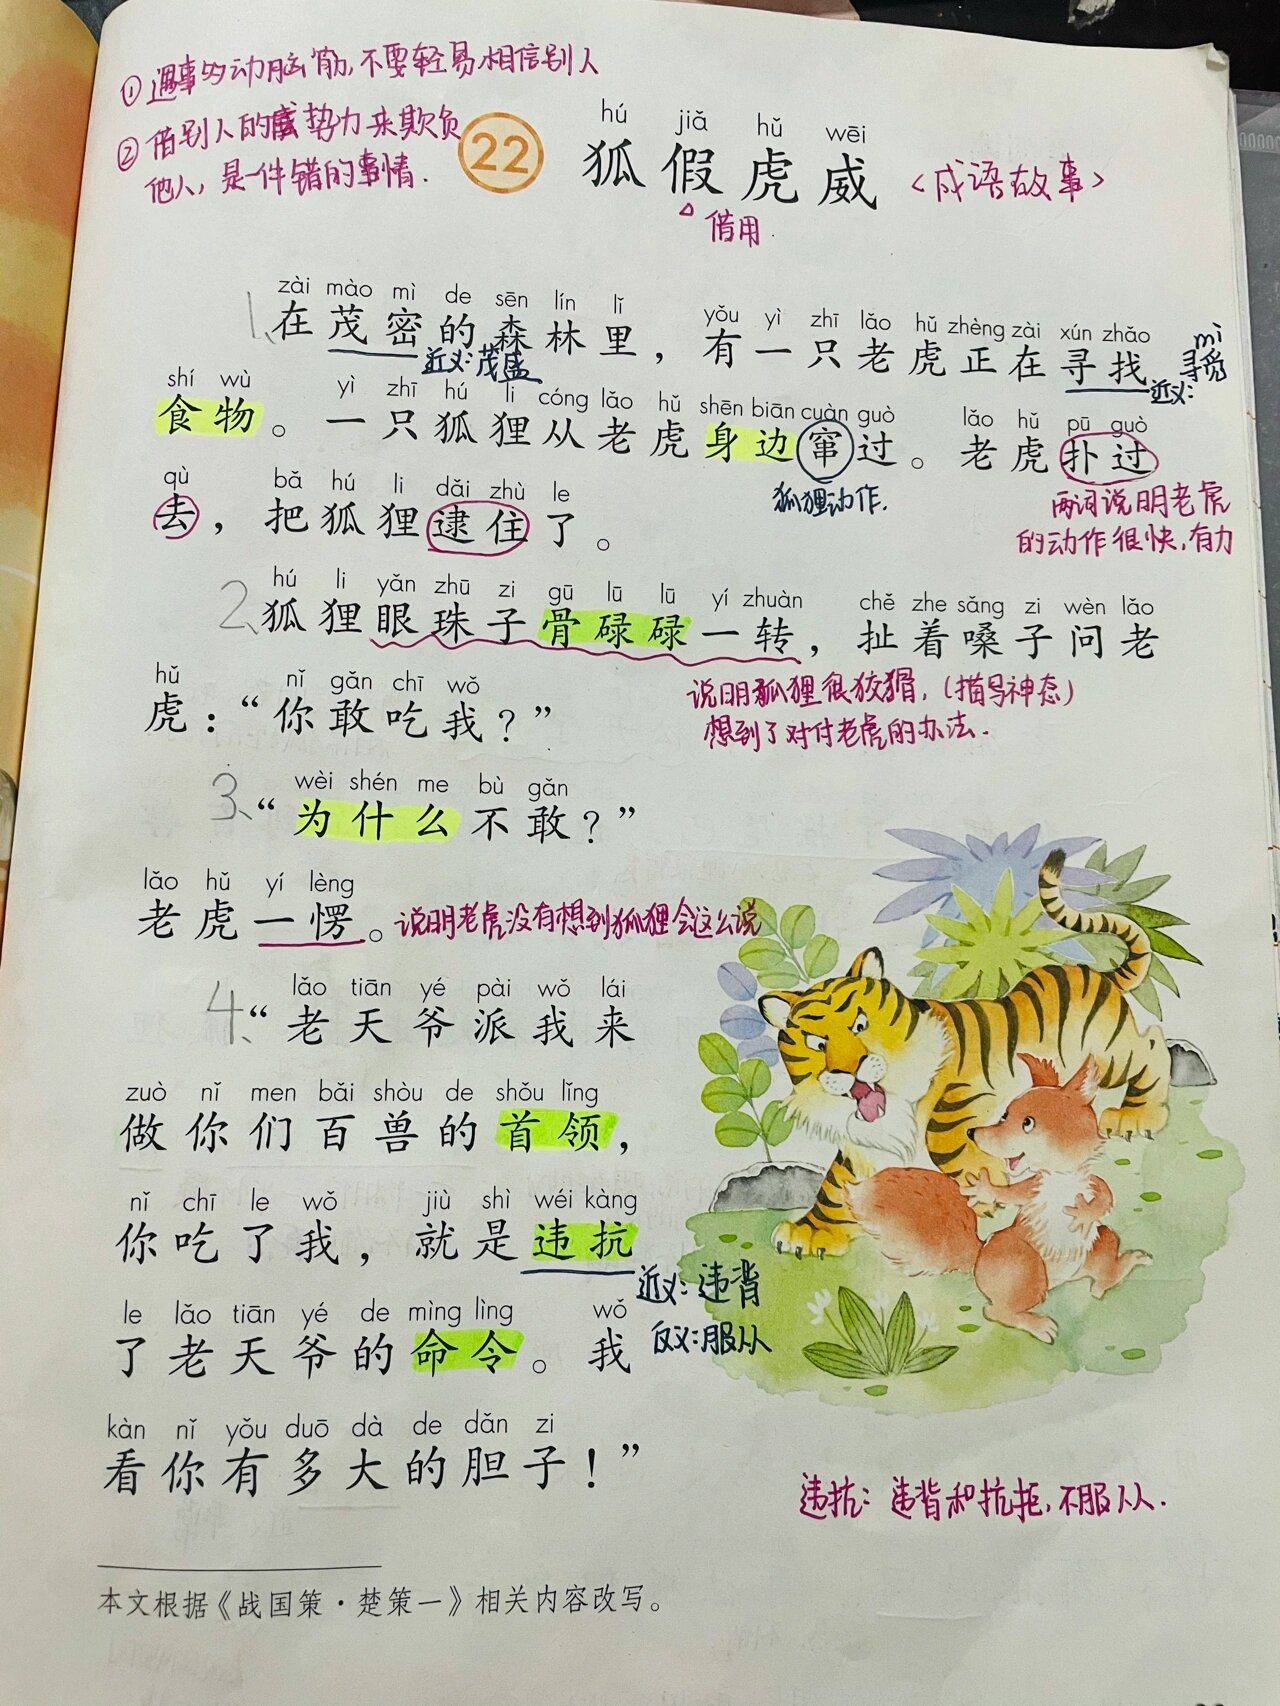 ①遇事多动脑筋,不要轻易相信别人
②借别人的威势力来欺负
他人,是一件错的事情.
22
hú jiǎ hǔ wēi
狐假虎威
<成语故事>
借用
zài mào mì de sēn lín lǐ yǒu yì zhī lǎo hǔ zhèng zài xún zhǎo
1、在茂密的森林里，有一只老虎正在寻找
近义:茂盛
近义:
mì
寻觅
shí wù yì zhī hú li cóng lǎo hǔ shēn biān cuàn guò lǎo hǔ pū guò
食物。一只狐狸从老虎身边窜过。老虎扑过
狐狸动作.
两词说明老虎
的动作很快,有力
qù bǎ hú li dǎi zhù le
去，把狐狸逮住了。
hú li yǎn zhū zi gū lū lū yí zhuàn chě zhe sǎng zi wèn lǎo
2、狐狸眼珠子骨碌碌一转，扯着嗓子问老
hǔ nǐ gǎn chī wǒ
虎：“你敢吃我？”
说明狐狸很狡猾,(描写神态)
想到了对付老虎的办法.
wèi shén me bù gǎn
3、“为什么不敢？”
lǎo hǔ yí lèng
老虎一愣。
说明老虎没有想到狐狸会这么说
lǎo tiān yé pài wǒ lái
4、“老天爷派我来
zuò nǐ men bǎi shòu de shǒu lǐng
做你们百兽的首领，
nǐ chī le wǒ jiù shì wéi kàng
你吃了我，就是违抗
近义:违背
反义:服从
le lǎo tiān yé de mìng lìng wǒ
了老天爷的命令。我
kàn nǐ yǒu duō dà de dǎn zi
看你有多大的胆子！”
违抗:违背和抗拒,不服从.
本文根据《战国策·楚策一》相关内容改写。